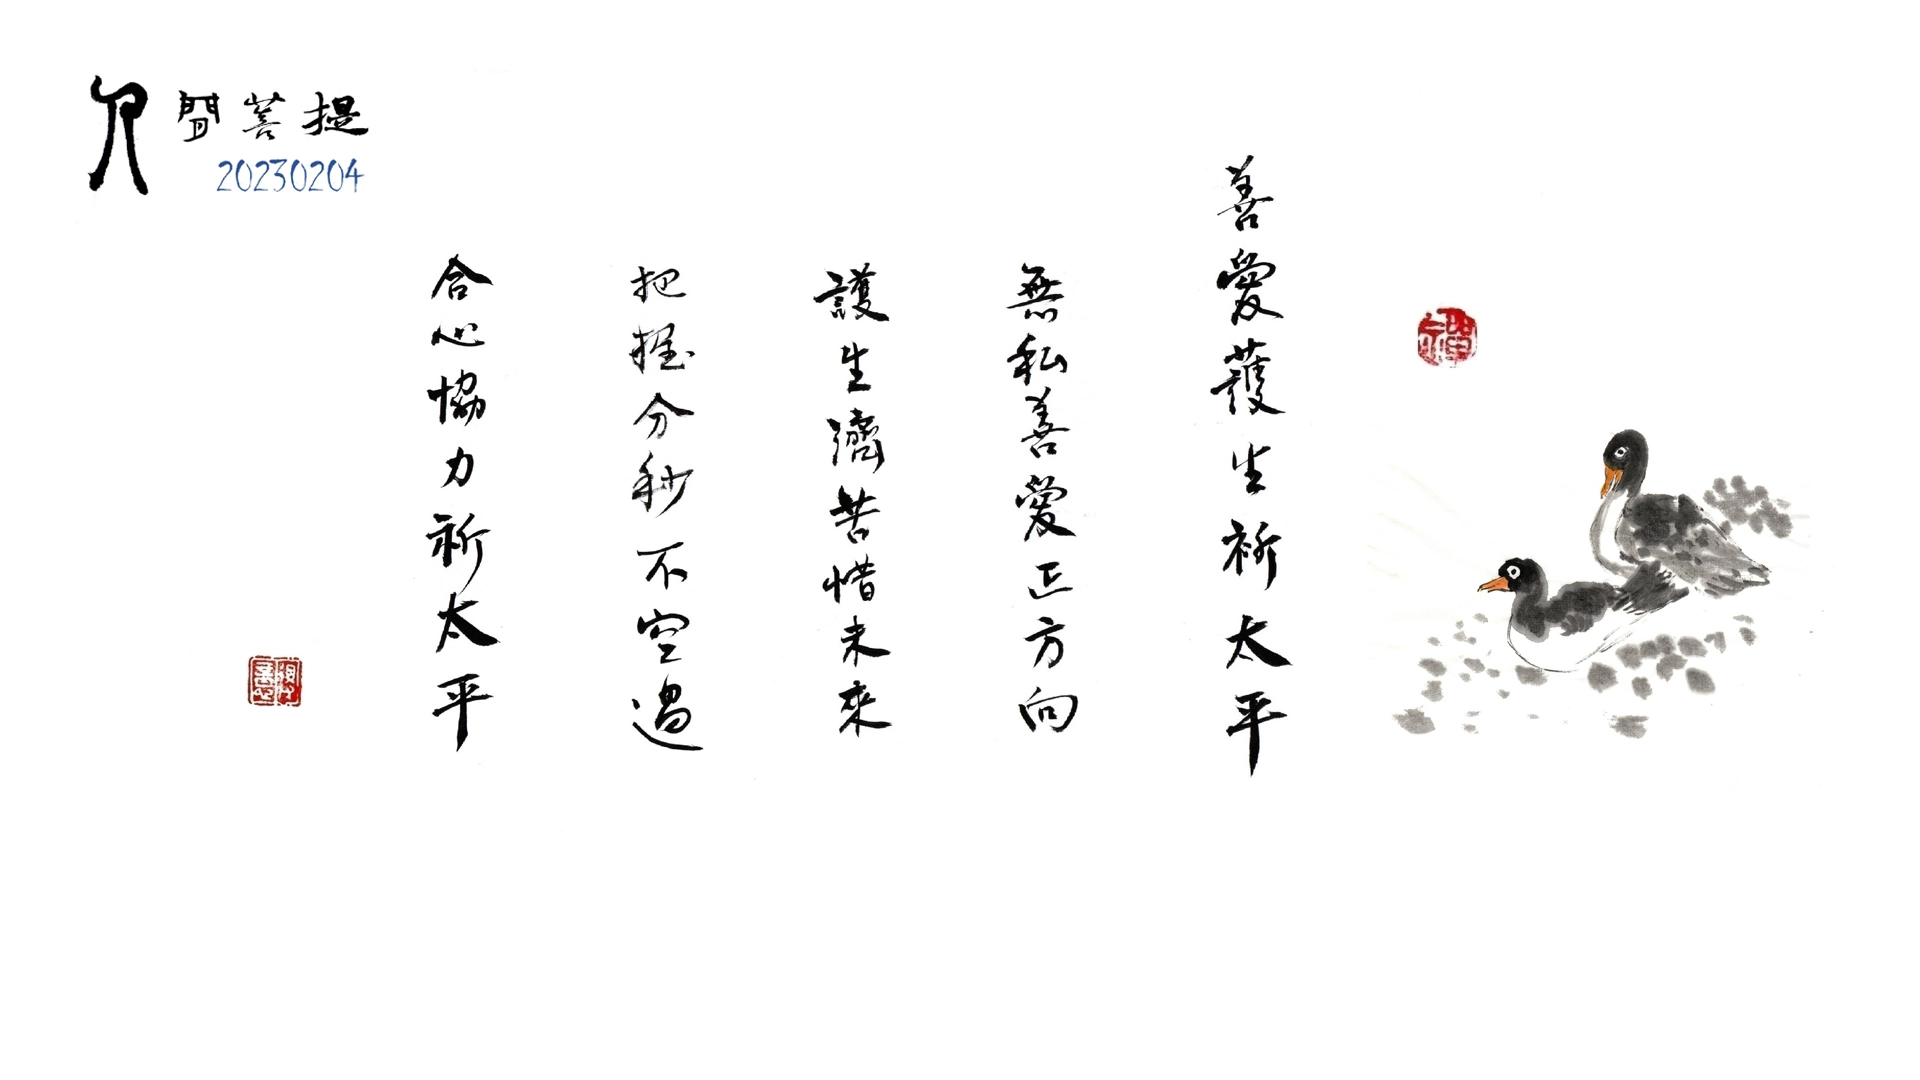 人間菩提
20230204
善愛護生祈太平
無私善愛正方向
護生濟苦惜未來
把握分秒不空過
合心協力祈太平
禪